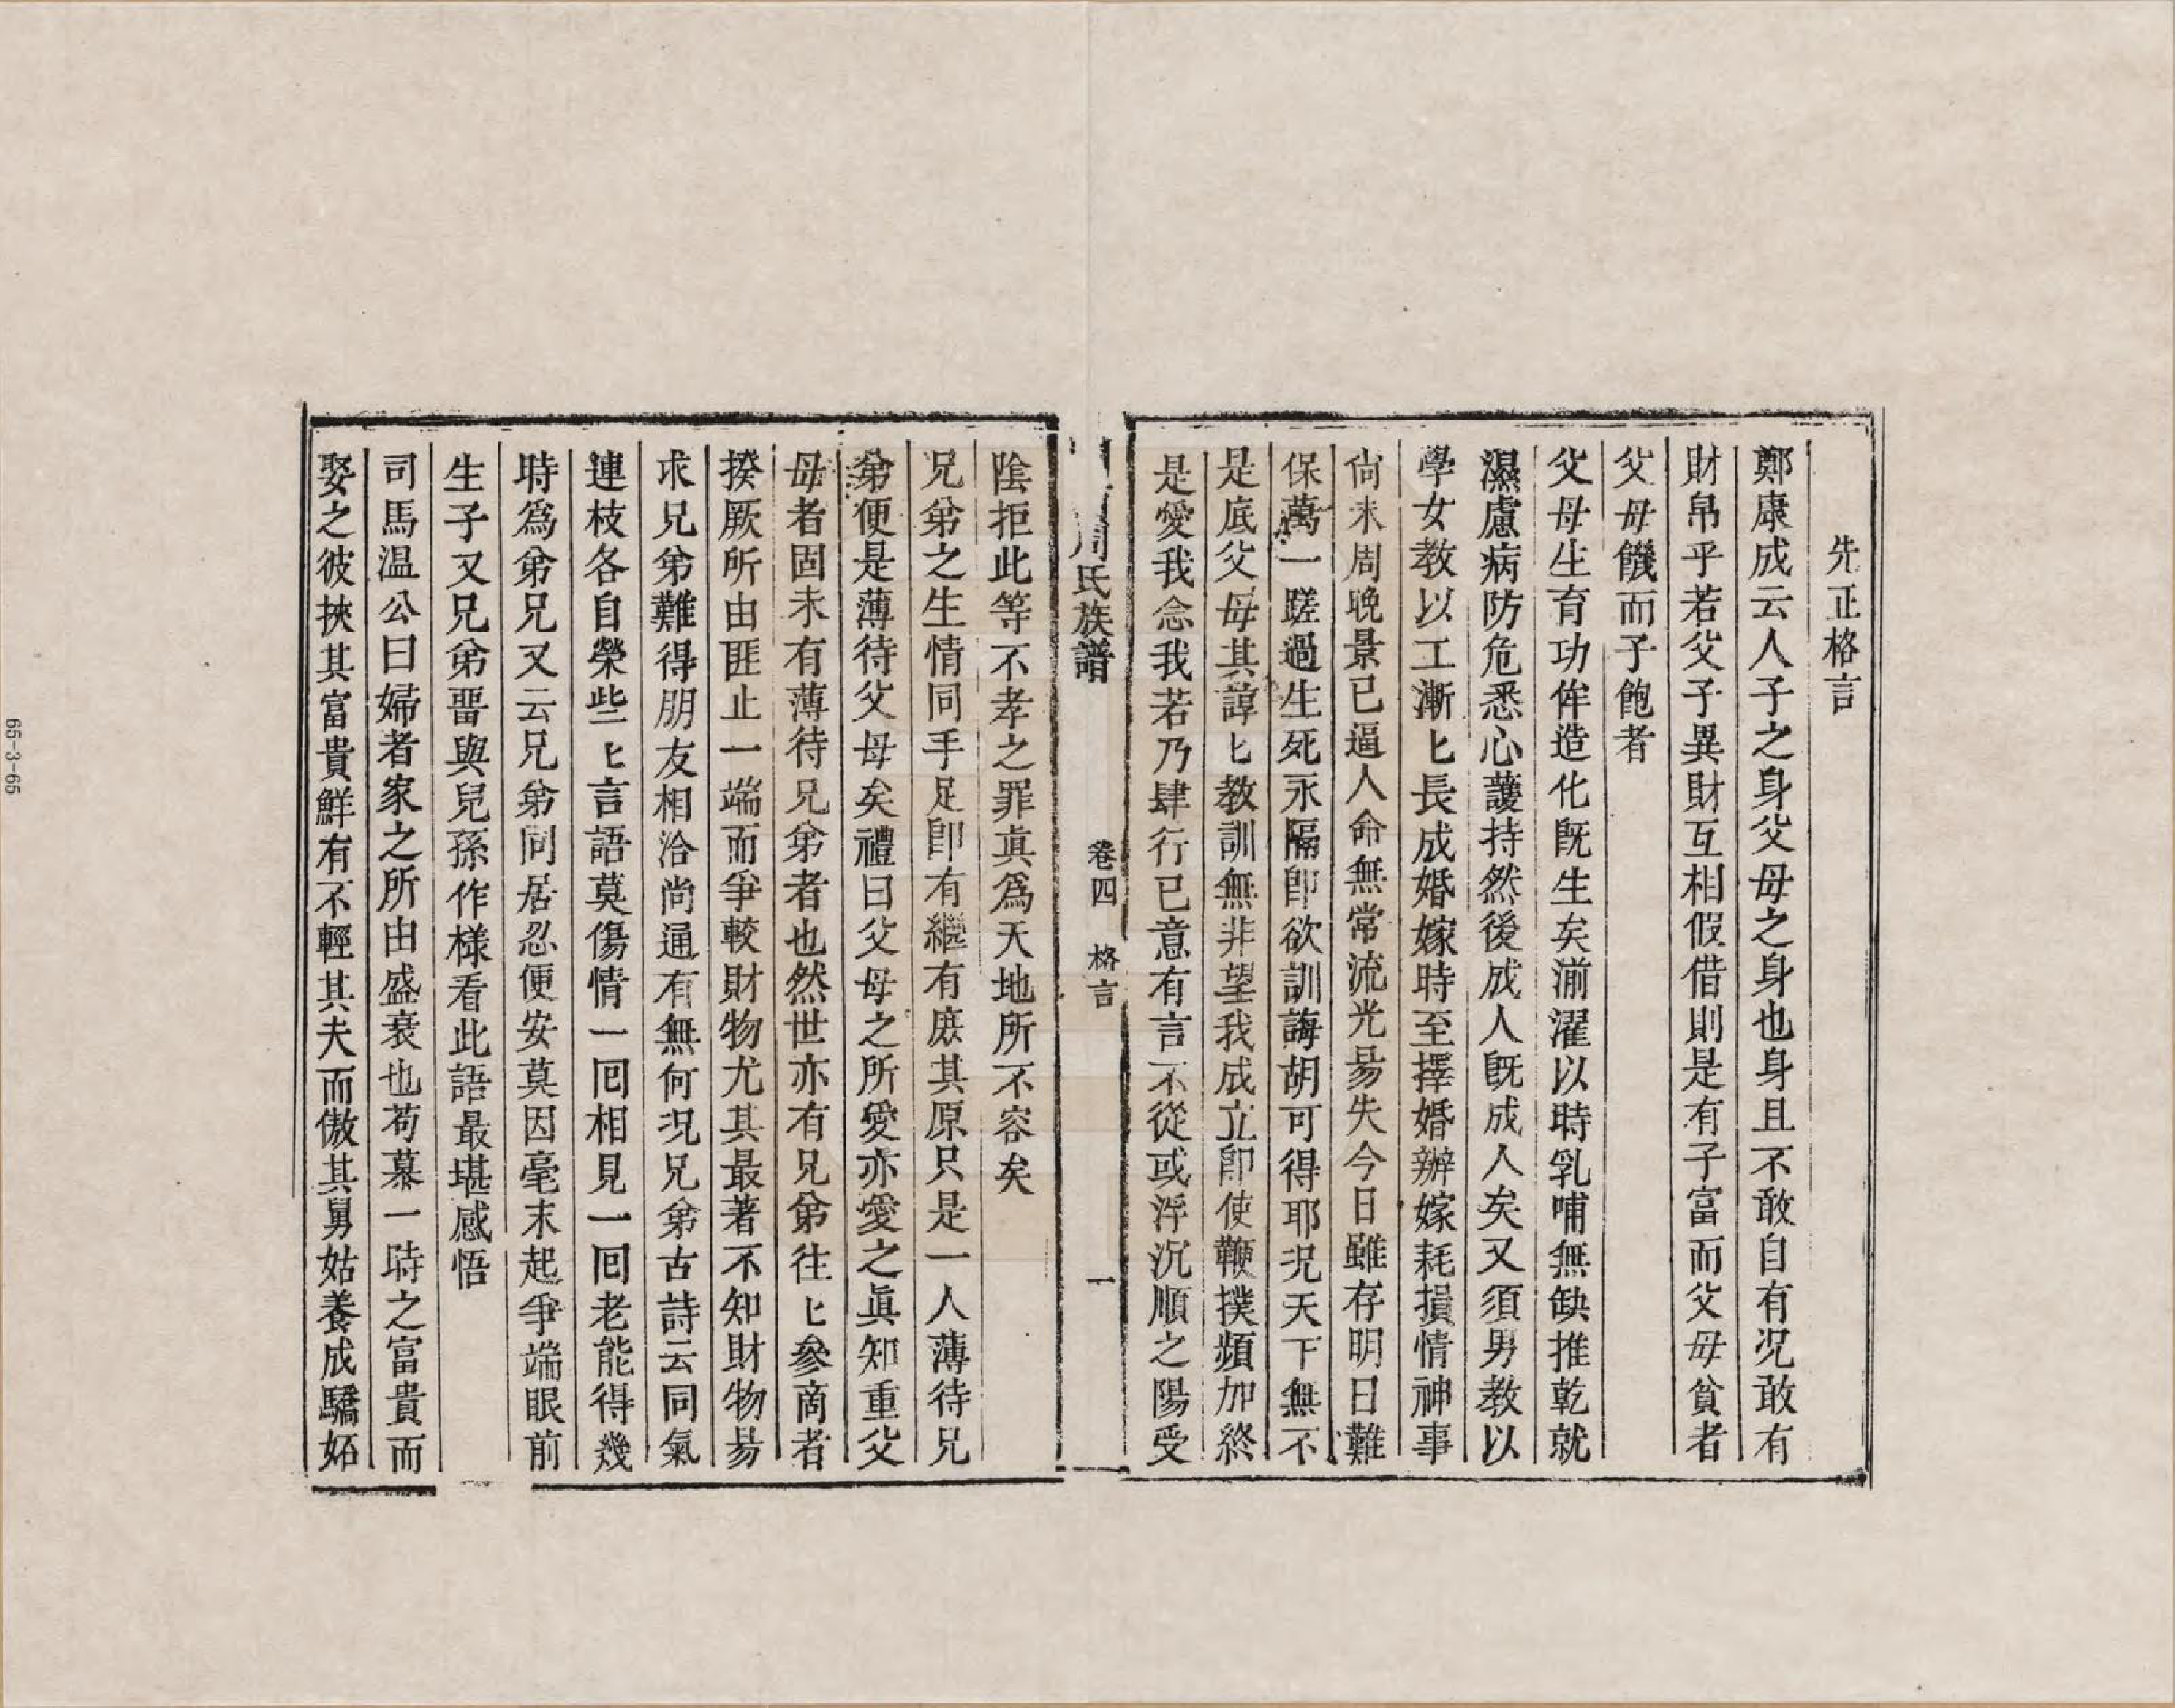 先正格言
鄭康成云人子之身父母之身也身且不敢自有况敢有
財帛乎若父子異財互相假借則是有子富而父母貧者
父母饑而子飽者
父母生育功侔造化既生矣湔濯以時乳哺無缺推乾就
濕慮病防危悉心護持然後成人既成人矣又須男教以
學女教以工漸匕長成婚嫁時至擇婚辦嫁耗損情神事
尙未周晚景已逼人命無常流光易失今日雖存明日難
保萬一蹉過生死永隔卽欲訓誨胡可得耶况天下無不
是底父母其諄匕教訓無非望我成立卽使鞭撲頻加終
是愛我念我若乃肆行已意有言不從或浮沉順之陽受
周氏族譜
卷四
格言
一
陰拒此等不孝之罪真爲天地所不容矣
兄弟之生情同手足卽有繼有庶其原只是一人薄待兄
弟便是薄待父母矣禮曰父母之所愛亦愛之眞知重父
母者固未有薄待兄弟者也然世亦有兄弟往匕參商者
揆厥所由匪止一端而爭較財物尤其最著不知財物易
求兄弟難得朋友相洽尚通有無何况兄弟古詩云同氣
連枝各自榮些匕言語莫傷情一回相見一回老能得幾
時爲弟兄又云兄弟同居忍便安莫因毫末起爭端眼前
生子又兄弟畱與兒孫作様看此語最堪感悟
司馬温公曰婦者家之所由盛衰也苟慕一時之富貴而
娶之彼挾其富貴鮮有不輕其夫而傲其舅姑養成驕妬
65-3-65